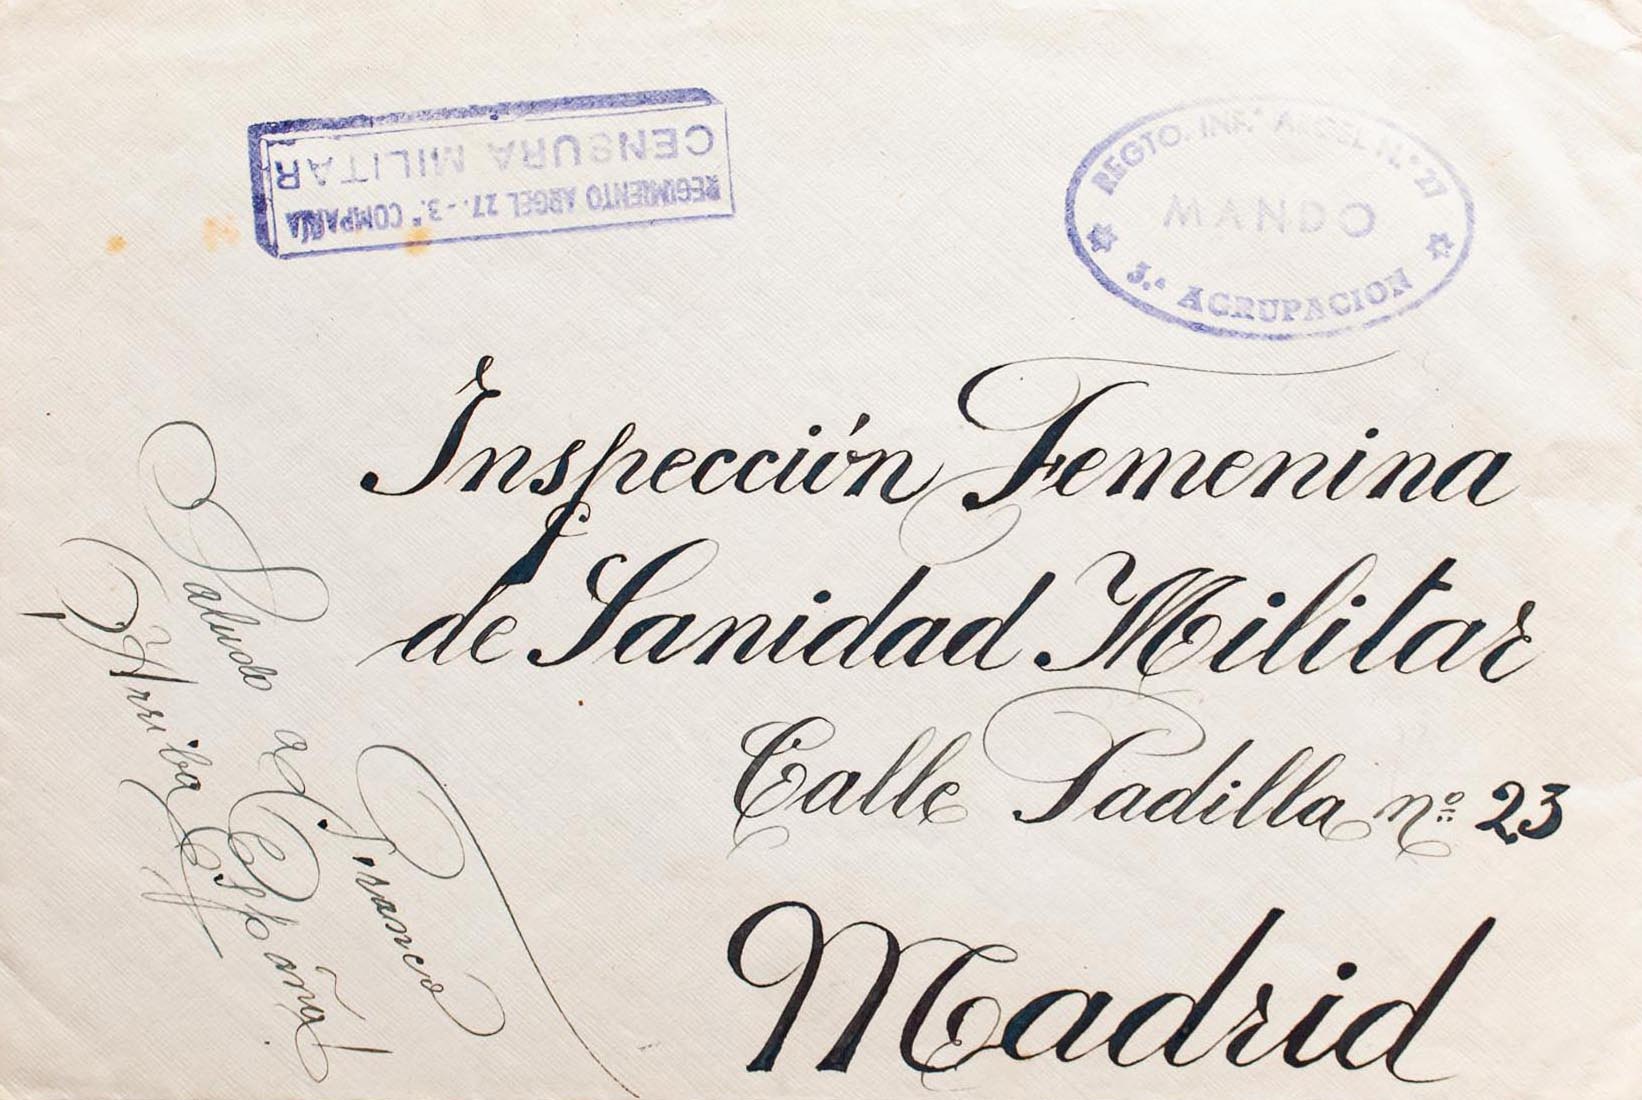 CENSURA MILITAR
REGIMIENTO ARGEL 27.-3.ª COMPAÑIA
REGTO. INF.ª ARGEL N.º 27
MANDO
3.ª AGRUPACION
Inspección Femenina
de Sanidad Militar
Calle Padilla nº 23
Madrid
Saludo a Franco
¡Arriba España!